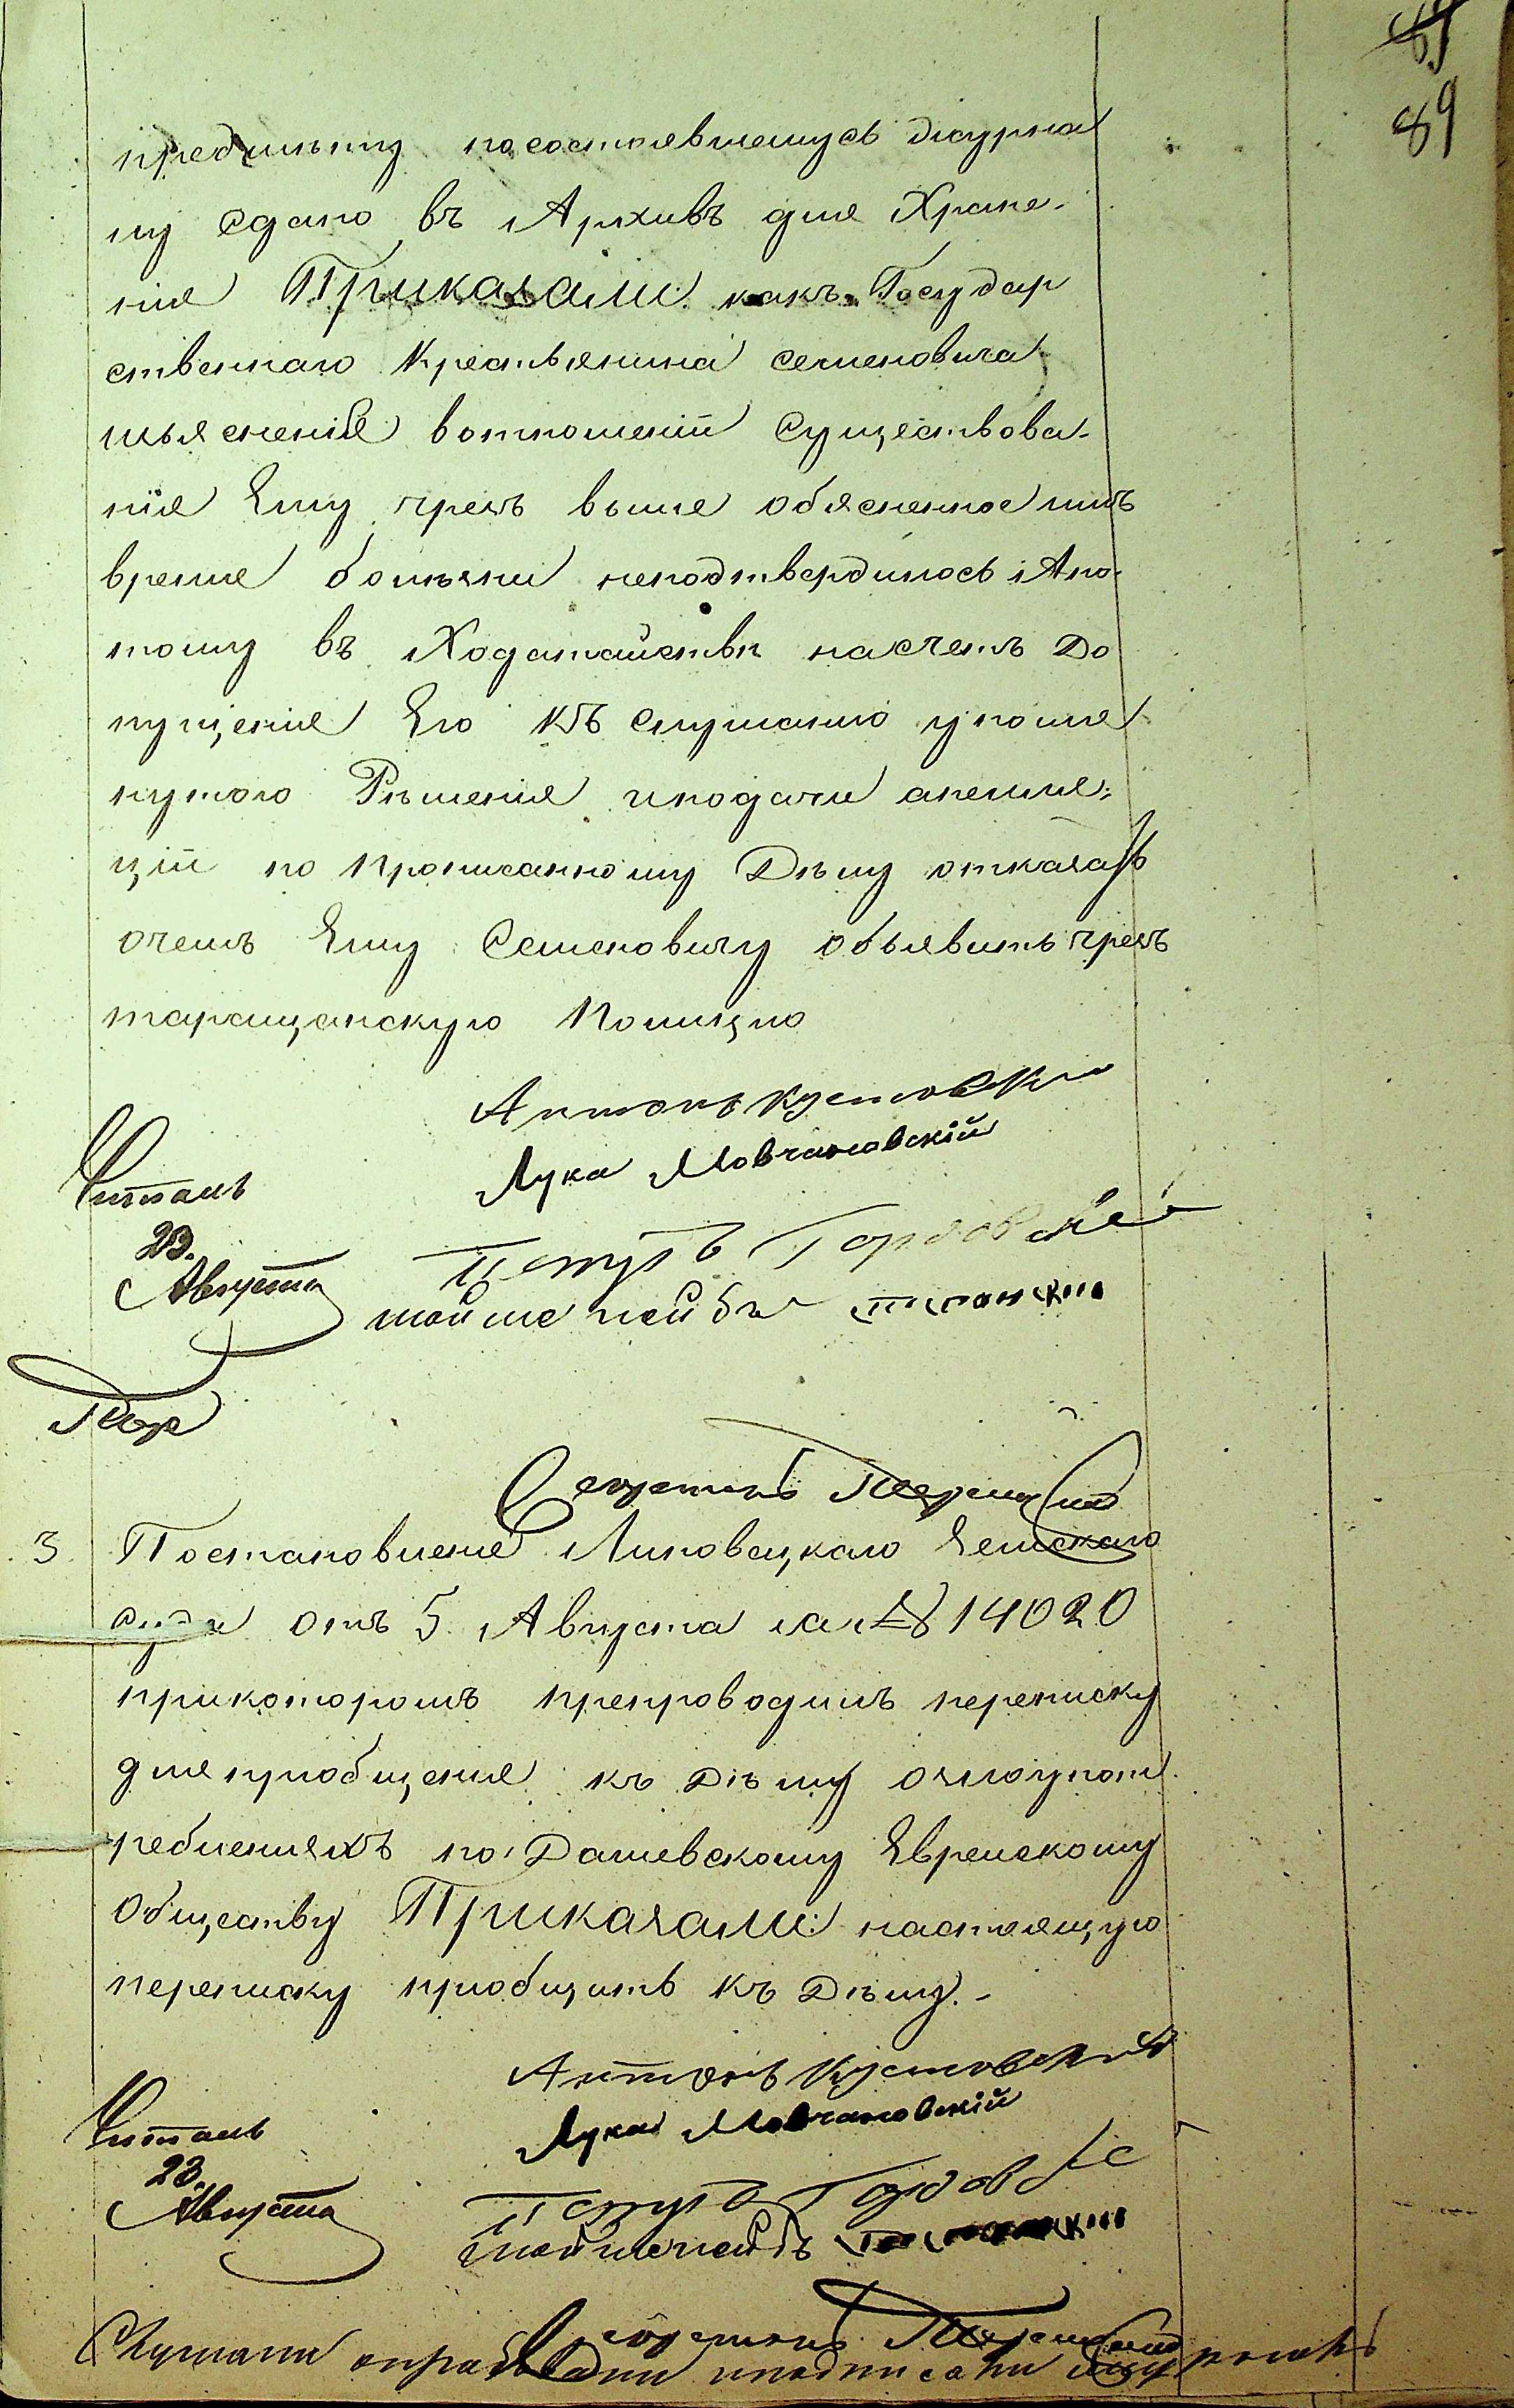 89
89
предъльту посостоявшемусъ Журна
лу Сдано въ Архивъ для Хране-
ния Приказали: какъ Государ
ственнаго Крестьянина Семеновича
изъясненія вотношеніи Существова-
нія Ему чрезъ выше объясненное имъ
время болѣзни неподтвердилось Апо-
тому въ Ходатайстве насчетъ До
пущения Его къ слушанию упомя
нутого Рѣшения иподачи апелля-
ціи по прописанному Дѣлу отказать
очемъ Ему Семеновичу объявить чрезъ
таращанскую Полицию
Антонъ Кустовски
Лука Мовчановскій
Читалъ
23.
Августа
Петръ
мойше лейбъ
Секретарь
3. Постановление Липовецкаго Земскаго
Суда отъ 5 Августа за № 14020
прикоторомъ препроводилъ переписку
для приобщения къ Дѣлу озлоупот
ребленияхъ по Дашевскому Еврейскому
Обществу Приказали: настоящую
переписку приобщить къ Дѣлу. -
Антонъ Кустовский
Лука Мовчановскій
Читалъ
23.
Августа
Петръ
Секретарь
Слушали иподписали